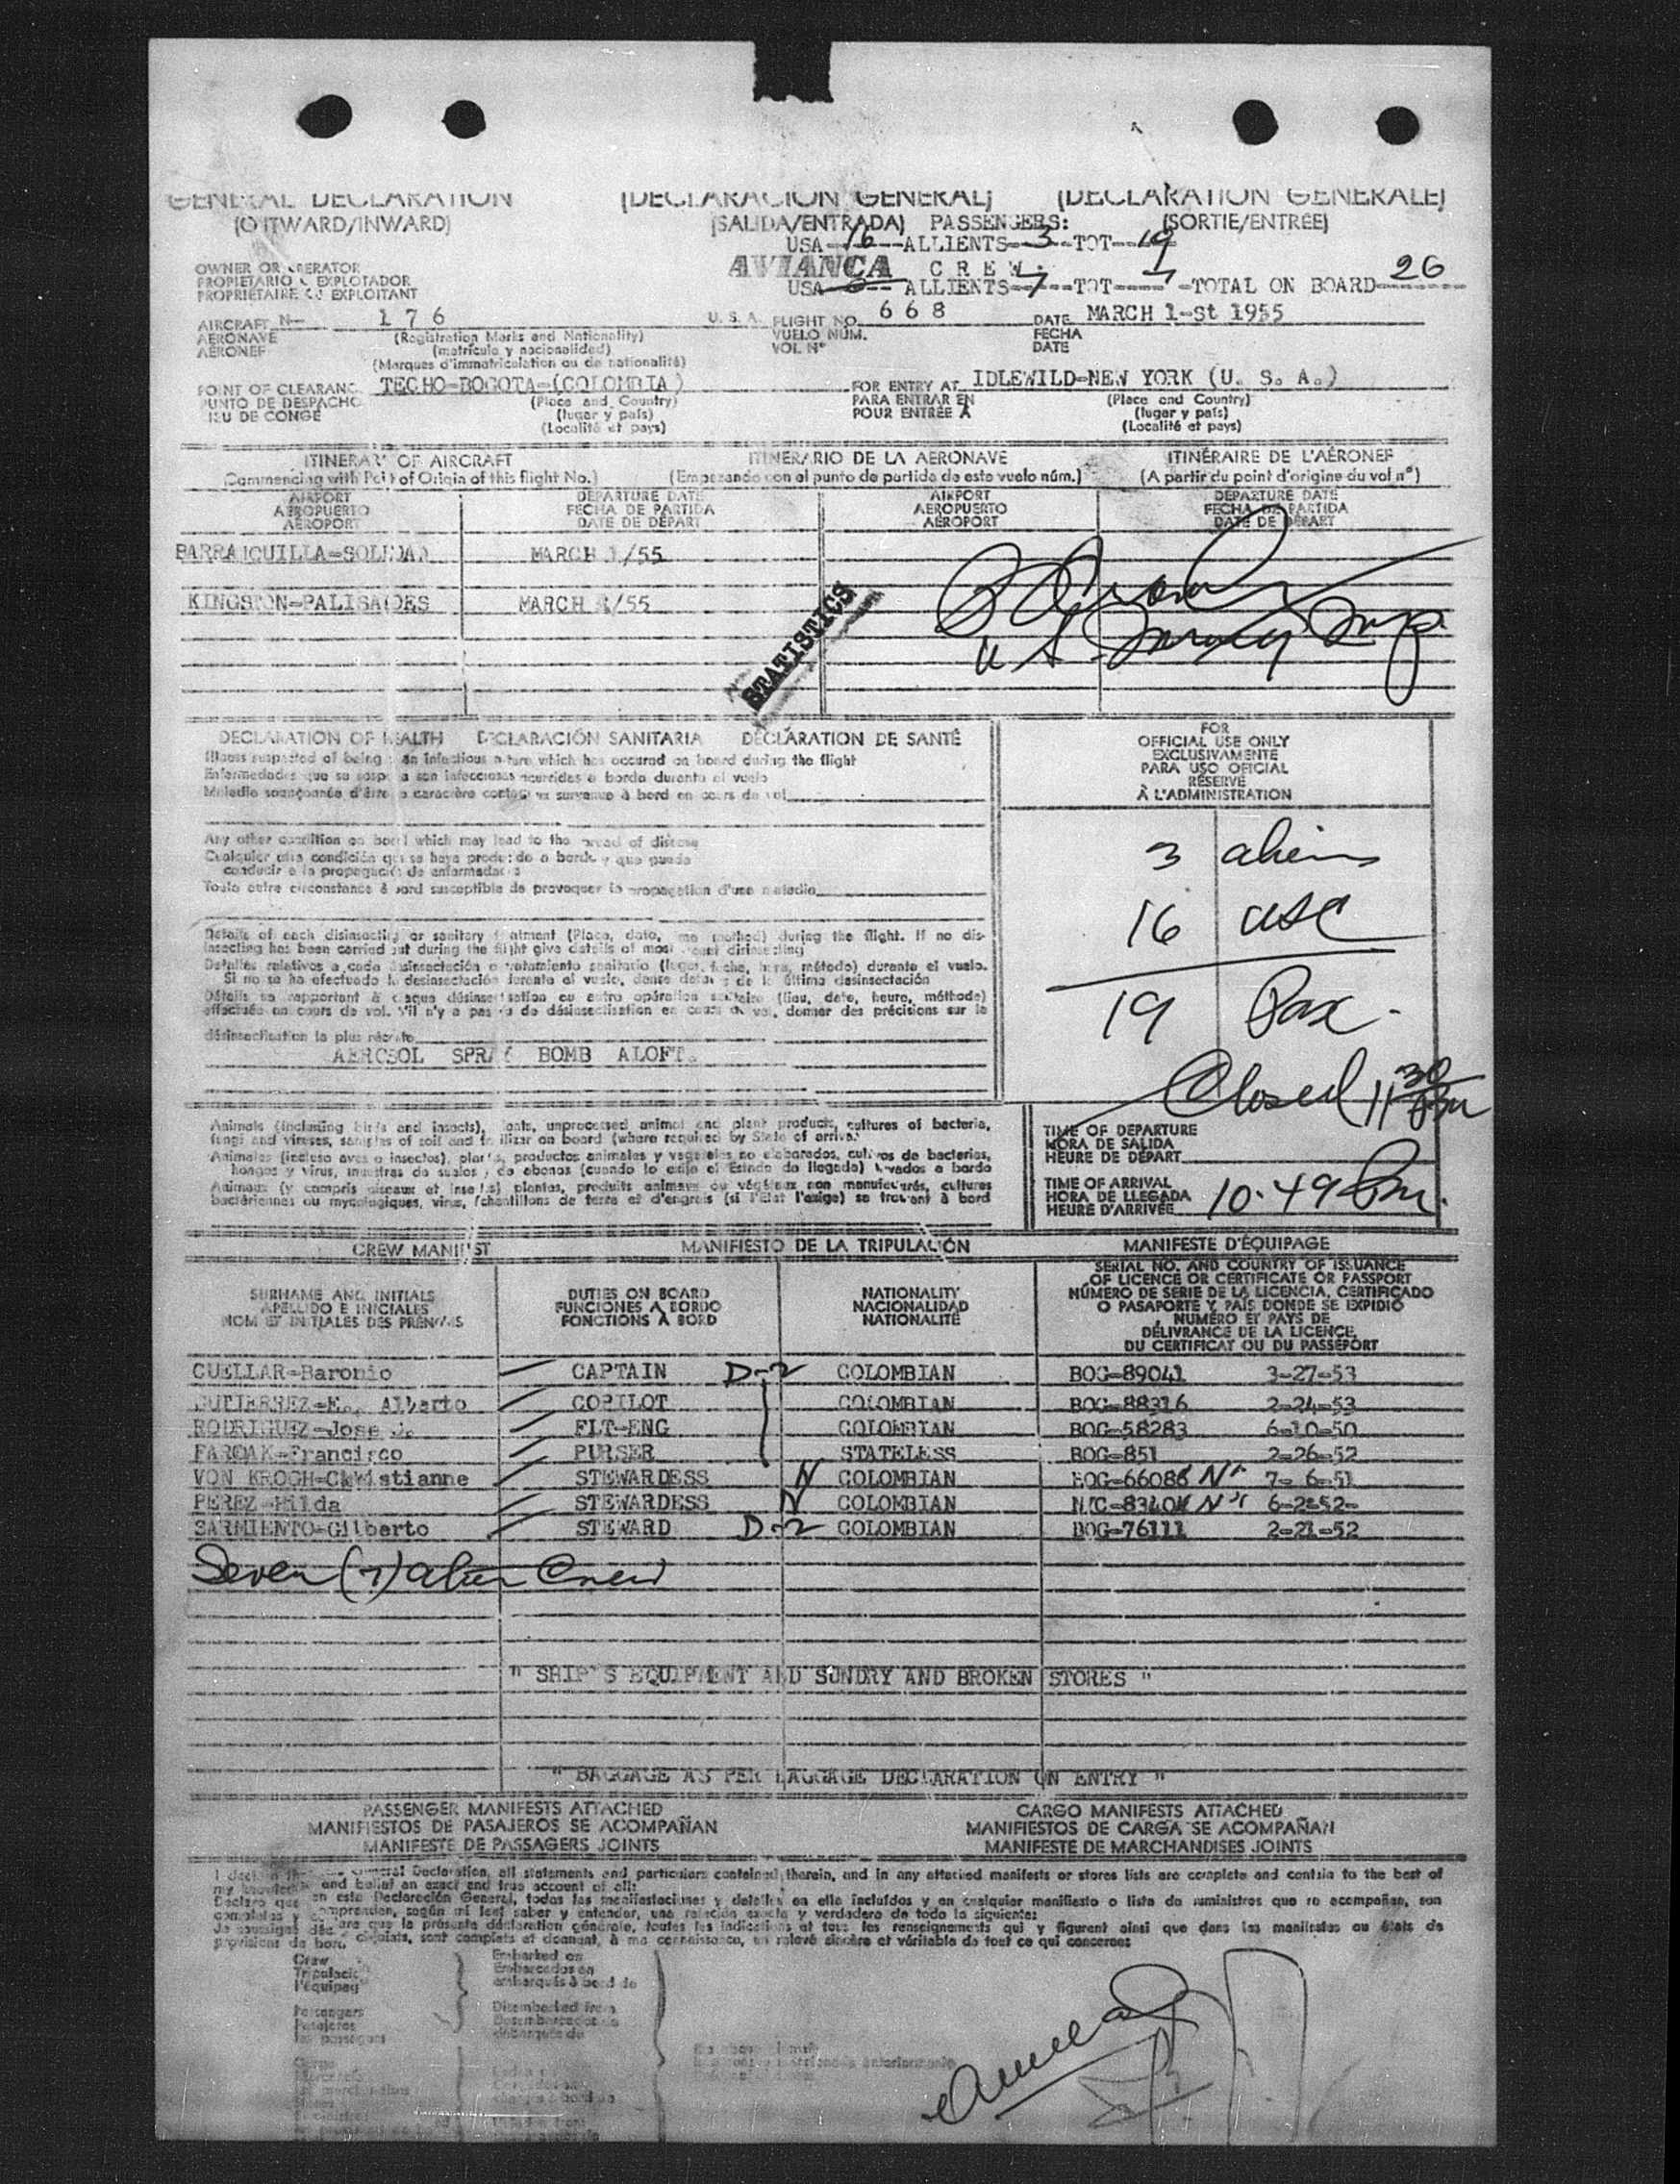 GENERAL DECLARATION (DECLARACION GENERAL) (DECLARATION GENERALE)
(OUTWARD/INWARD) (SALIDA/ENTRADA) PASSENGERS: (SORTIE/ENTRÉE)
USA--16--ALLIENTS--3--TOT--19
OWNER OR OPERATOR AVIANCA CREW:
PROPIETARIO O EXPLOTADOR
PROPRIÉTAIRE OU EXPLOITANT USA--0--ALLIENTS--7--TOT----7-TOTAL ON BOARD 26
AIRCRAFT N- 176 U. S. A. FLIGHT NO. 668 DATE MARCH 1-St 1955
AÉRONAVE (Registration Marks and Nationality) VUELO NÚM. FECHA
AÉRONEF (matrícula y nacionalidad) VOL Nº DATE
(Marques d'immatriculation ou de nationalité)
POINT OF CLEARANC TECHO-BOGOTA-(COLOMBIA) FOR ENTRY AT IDLEWILD-NEW YORK (U. S. A.)
PUNTO DE DESPACHO (Place and Country) PARA ENTRAR EN (Place and Country)
(lugar y país) POUR ENTRÉE A (lugar y país)
LIEU DE CONGÉ (Localité et pays) (Localité et pays)
ITINERARY OF AIRCRAFT ITINERARIO DE LA AERONAVE ITINÉRAIRE DE L'AÉRONEF
(Commencing with Point of Origin of this flight No.) (Empezando con el punto de partida de este vuelo núm.) (A partir du point d'origine du vol nº)
AIRPORT DEPARTURE DATE AIRPORT DEPARTURE DATE
AEROPUERTO FECHA DE PARTIDA AEROPUERTO FECHA DE PARTIDA
AÉROPORT DATE DE DÉPART AÉROPORT DATE DE DÉPART
BARRANQUILLA-SOLEDAD MARCH 1/55
KINGSTON-PALISADES MARCH 1/55
STATISTICS
DECLARATION OF HEALTH DECLARACIÓN SANITARIA DÉCLARATION DE SANTÉ
Illness suspected of being an infectious nature which has occured on board during the flight
Enfermedades que se sospecha son infecciosas ocurridas a bordo durante el vuelo
Maladie soupçonnée d'être a caractère contagieux survenue à bord en cours de vol
Any other condition on board which may lead to the spread of disease
Cualquier otra condición que se haya producido a bordo y que pueda
conducir a la propagación de enfermedades
Toute autre circonstance à bord susceptible de provoquer la propagation d'une maladie
Details of each disinsecting or sanitary treatment (Place, date, time method) during the flight. If no dis-
insecting has been carried out during the flight give details of most recent disinsecting
Detalles relativos a cada desinsectación o tratamiento sanitario (lugar, fecha, hora, método) durante el vuelo.
Si no se ha efectuado la desinsectación durante el vuelo, dense detalles de la última desinsectación
Détails se rapportant à chaque désinsectisation ou autre opération sanitaire (lieu, date, heure, méthode)
effectuée en cours de vol. S'il n'y a pas eu de désinsectisation en cours de vol, donner des précisions sur la
désinsectisation la plus récente
AEROSOL SPRAY BOMB ALOFT.
FOR
OFFICIAL USE ONLY
EXCLUSIVAMENTE
PARA USO OFICIAL
RÉSERVÉ
À L'ADMINISTRATION
3 aliens
16 USC
19 Pax.
Closed 11 30 Pm
Animals (including birds and insects), plants, unprocessed animal and plant products, cultures of bacteria,
fungi and viruses, samples of soil and fertilizar on board (where required by State of arrival)
Animales (incluso aves o insectos), plantas, productos animales y vegetales no elaborados, cultivos de bacterias,
hongos y virus, muestras de suelos y de abonos (cuando lo exija el Estado de llegada) llevados a bordo
Animaux (y compris oiseaux et insectes) plantes, produits animaux ou végétaux non manufacturés, cultures
bactériennes ou mycologiques, virus, échantillons de terre et d'engrais (si l'État l'exige) se trouvant à bord
TIME OF DEPARTURE
HORA DE SALIDA
HEURE DE DÉPART
TIME OF ARRIVAL
HORA DE LLEGADA 10-49 Pm.
HEURE D'ARRIVÉE
CREW MANIFEST MANIFIESTO DE LA TRIPULACIÓN MANIFESTE D'ÉQUIPAGE
SURNAME AND INITIALS DUTIES ON BOARD NATIONALITY SERIAL NO. AND COUNTRY OF ISSUANCE
APELLIDO E INICIALES FUNCIONES A BORDO NACIONALIDAD OF LICENCE OR CERTIFICATE OR PASSPORT
NOM ET INITIALES DES PRÉNOMS FONCTIONS À BORD NATIONALITÉ NÚMERO DE SERIE DE LA LICENCIA, CERTIFICADO
O PASAPORTE Y PAÍS DONDE SE EXPIDIÓ
NUMÉRO ET PAYS DE
DÉLIVRANCE DE LA LICENCE,
DU CERTIFICAT OU DU PASSEPORT
CUELLAR-Baronio CAPTAIN D-2 COLOMBIAN BOG-89041 3-27-53
GUTIERREZ-E., Alberto COPILOT COLOMBIAN BOG-88316 2-24-53
RODRIGUEZ-Jose J. FLT-ENG COLOMBIAN BOG-58283 6-10-50
FAROAK-Francisco PURSER STATELESS BOG-851 2-26-52
VON KROGH-Christianne STEWARDESS N COLOMBIAN BOG-66086 7- 6-51
PEREZ-Hilda STEWARDESS N COLOMBIAN 6-2-52-
SARMIENTO-Gilberto STEWARD D-2 COLOMBIAN BOG-76111 2-21-52
Seven (7) alien Crew
" SHIP'S EQUIPMENT AND SUNDRY AND BROKEN STORES "
" BAGGAGE AS PER BAGGAGE DECLARATION ON ENTRY "
PASSENGER MANIFESTS ATTACHED CARGO MANIFESTS ATTACHED
MANIFIESTOS DE PASAJEROS SE ACOMPAÑAN MANIFIESTOS DE CARGA SE ACOMPAÑAN
MANIFESTE DE PASSAGERS JOINTS MANIFESTE DE MARCHANDISES JOINTS
General Declaration, all statements and particulars contained therein, and in any attached manifests or stores lists are complete and contain to the best of
my knowledge and belief an exact and true account of all:
Declaro que en esta Declaración General, todas las manifestaciones y detalles en ella incluídos y en cualquier manifiesto o lista de suministros que se acompañan, son
completas y comprenden, según mi leal saber y entender, una relación exacta y verdadera de todo lo siguiente:
que la présente déclaration générale, toutes les indications et tous les renseignements qui y figurent ainsi que dans les manifestes ou états de
provisions de bord ci-joints, sont complets et donnent, à ma connaissance, un relevé sincère et véritable de tout ce qui concerne:
Crew Embarked on
Tripulación Embarcados en
l'équipage embarqués à bord de
Passengers Disembarked from
Pasajeros Desembarcados de
les passagers débarqués de